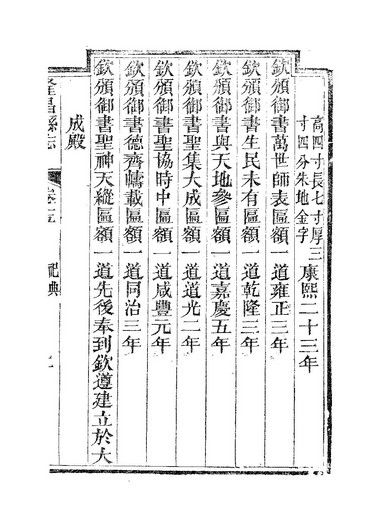 高四寸長七寸厚三
寸四分朱地金字
康熙二十三年
欽頒御書萬世師表匾額一道雍正三年
欽頒御書生民未有匾額一道乾隆三年
欽頒御書與天地參匾額一道嘉慶五年
欽頒御書聖集大成匾額一道道光二年
欽頒御書聖協時中匾額一道咸豐元年
欽頒御書德濟幬載匾額一道同治三年
欽頒御書聖神天縱匾額一道先後奉到欽遵建立於大
成殿
隆昌縣志
祀典